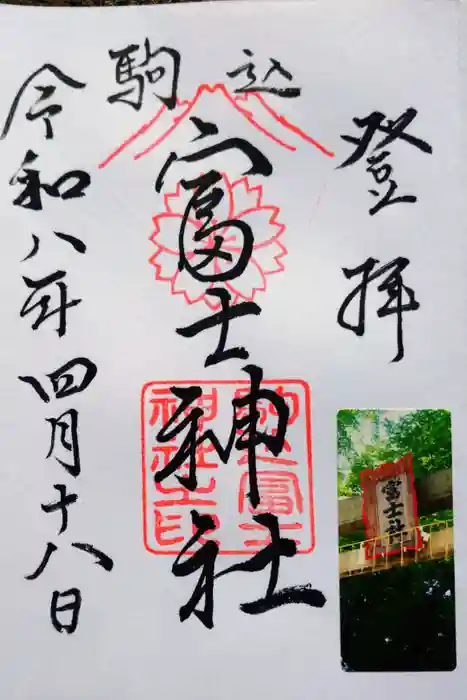 登拝
駒込
富士神社
令和八年四月十八日
駒込富士
神社之印
富士社